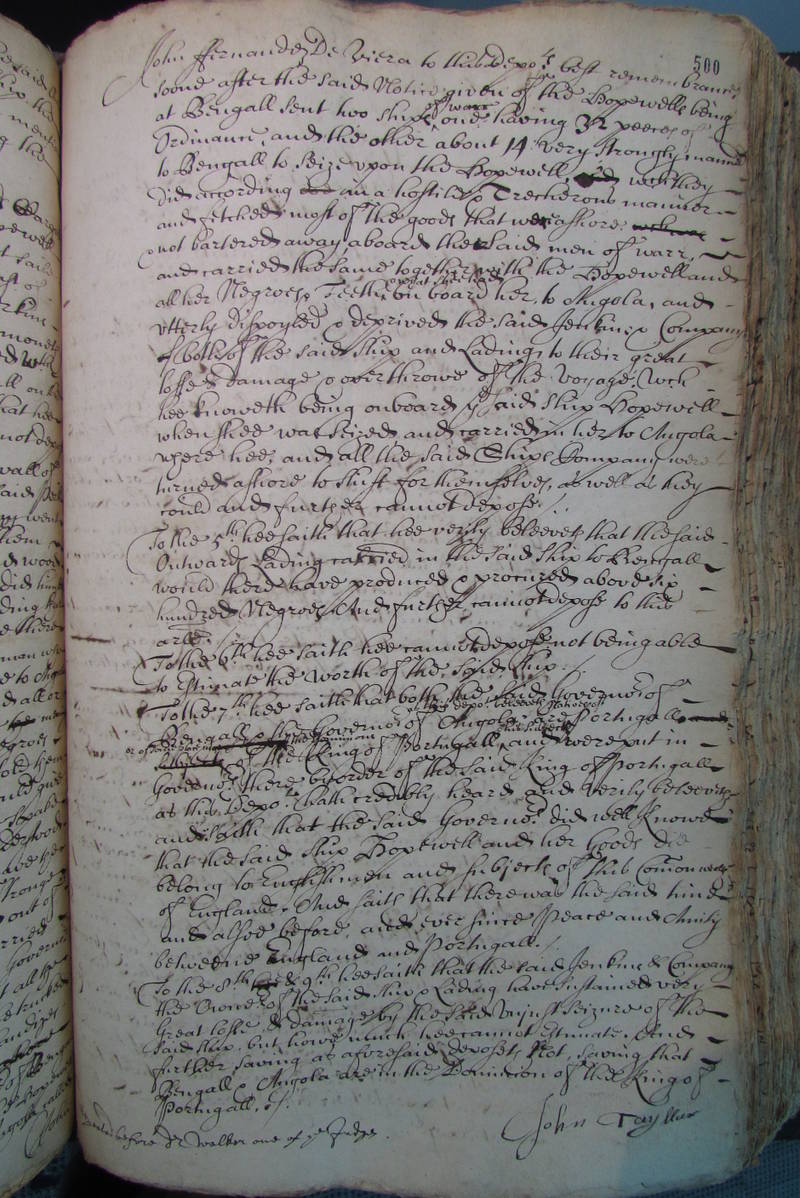 500
John Fernandes De Viera to this depo.ts best remembrance
soone after the said Notice given of the Hopewells being
at Bengall sent two ships of warr, one having 32 peeces of
Ordinance, and the other about 14 very strongly manned
to Bengall to seize upon the Hopewell, wch they
did according in a hostile & Trecherous manner
and fetched most of the goods that were ashore
not bartered away aboard the said men of warr,
and carried the same together with the Hopewell and
all her Negroes, Teeth, on board her, to Angola, and
utterly dispoyled & deprived the said Jenkins & Company
of both of the said ship and Lading, to their great
losse & damage & overthrowe of the voyage; Wch
hee knoweth being onboard ye said ship Hopewell
when shee was seized and carried in her to Angola
where hee, and all the said Ships Company were
turned ashore to shift for themselves, as well as they
could and further cannot depose./.
To the 5th hee saith that hee verily beleeves that the said
Outwards Lading carried in the said ship to Bengall
would there have produced & procured above six
hundred Negroes, And further cannot depose to this
arle./
To the 6th hee saith hee cannot depose not being able
to Estimate the worth of the said ship./.
To the 7th hee saith that both the said Governors of
this depot beleeveth
Bengall & the Governor of Angola are Portugalls
of the King of Portugall, and were put in
Governors there by order of the said King of Portugall
as this Depo.t hath credibly heard and verily beleeves
and saith that the said Governors did well knowe
that the said ship Hopewell and her Goods did
belong to Englishmen and subjects of this Comonwealth
of England. And saith that there was the said time
and alsoe before, and ever since Peace and Amity
betweene England and Portugall./
To the 8th & 9th hee saith that the said Jenkins & Company
the Owners of the said ship & Lading have sustained very
Great losse & damage by the said Unjust seizure of the
said ship, but how much hee cannot estimate. And
further saving as aforesaid deposes Not, saving that
Bengall & Angola are in the Dominion of the King of
Portugall./.
John Tayllor
before Dr Walker one of ye Judges.